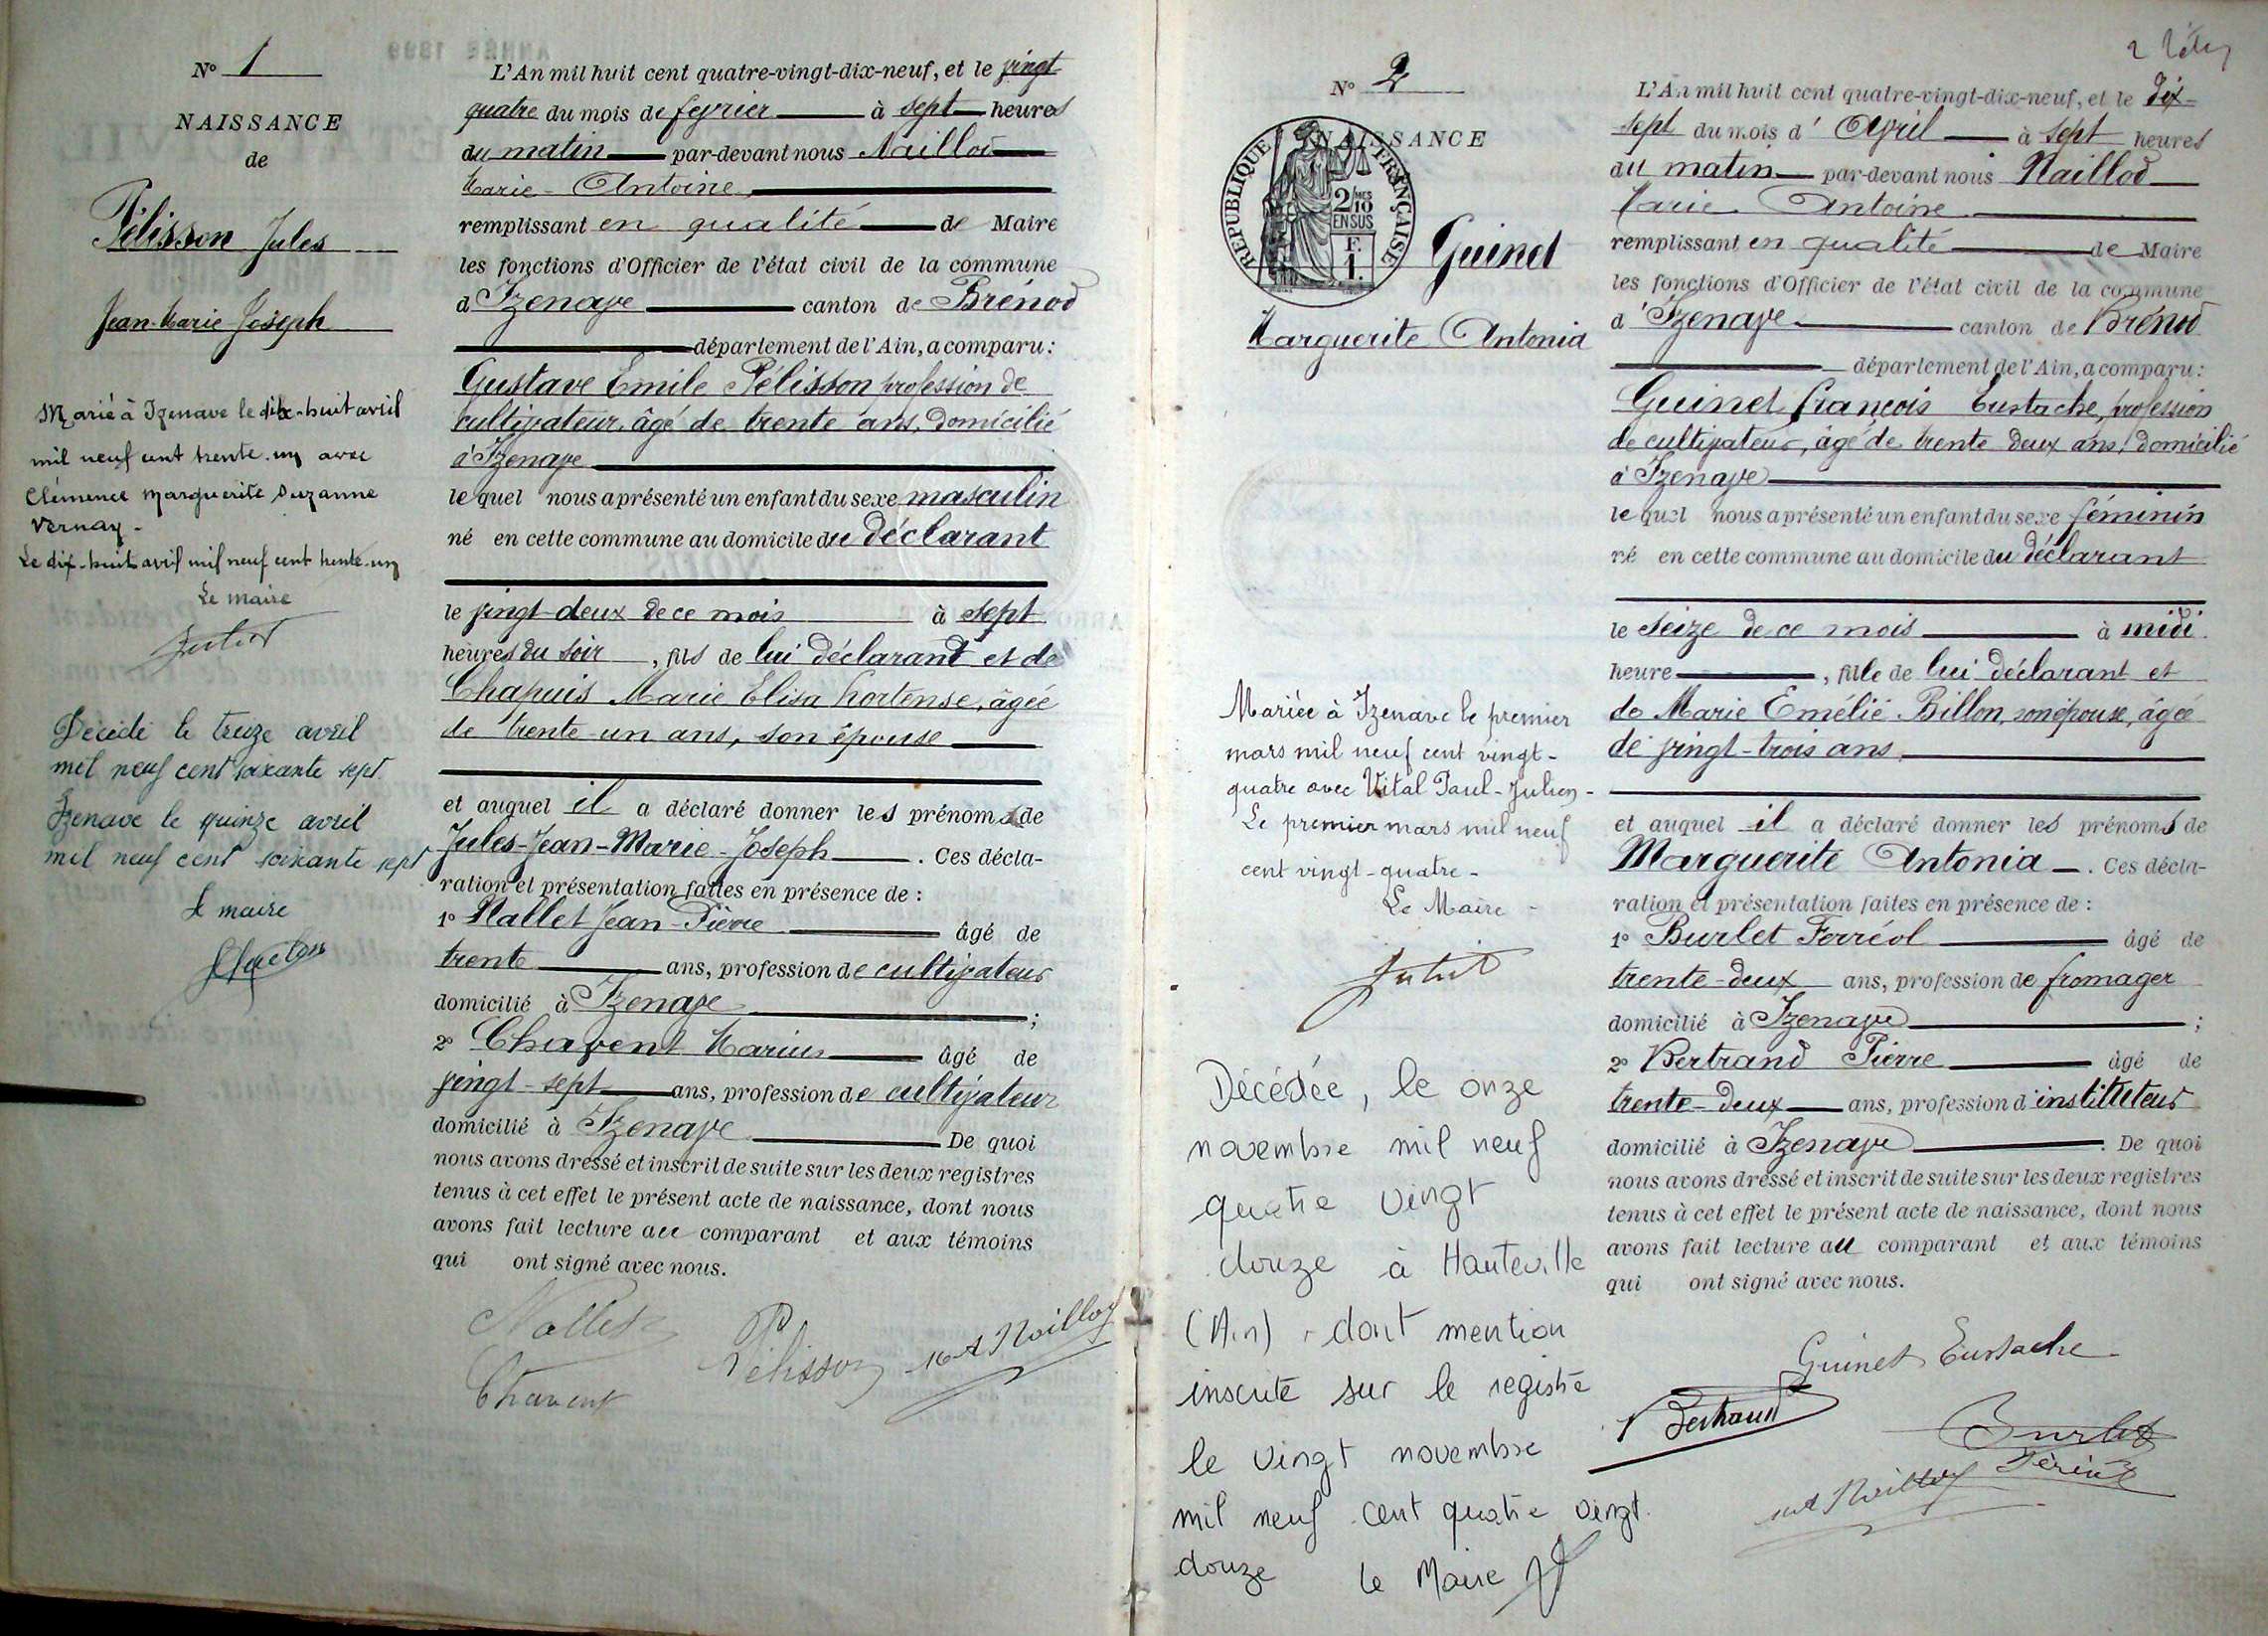 N° 1
NAISSANCE
de
Pélisson Jules
Jean-Marie Joseph
Marié à Izenave le dix-huit avril
mil neuf cent trente-un avec
Clémence Marguerite Suzanne
Vernay-
Le dix-huit avril mil neuf cent trente-un
Le maire
Décédé le treize avril
mil neuf cent soixante sept.
Izenave le quinze avril
mil neuf cent soixante sept
Le maire
L'An mil huit cent quatre-vingt-dix-neuf, et le vingt
quatre du mois de fevrier à sept heures
du matin par-devant nous Naillod
Marie-Antoine
remplissant en qualité de Maire
les fonctions d'Officier de l'état civil de la commune
d'Izenave canton de Brénod
département de l'Ain, a comparu:
Gustave Emile Pélisson profession de
cultivateur, âgé de trente ans, domicilié
à Izenave
lequel nous a présenté un enfant du sexe masculin
né en cette commune au domicile du déclarant
le vingt-deux de ce mois à sept
heures du soir, fils de lui déclarant et de
Chapuis Marie Elisa hortense, âgée
de trente-un ans, son épouse
et auquel il a déclaré donner les prénoms de
Jules-Jean-Marie-Joseph. Ces décla-
ration et présentation faites en présence de :
1° Nallet Jean-Pierre âgé de
trente ans, profession de cultivateur
domicilié à Izenave ;
2° Chavent Marius âgé de
vingt-sept ans, profession de cultivateur
domicilié à Izenave De quoi
nous avons dressé et inscrit de suite sur les deux registres
tenus à cet effet le présent acte de naissance, dont nous
avons fait lecture au comparant et aux témoins
qui ont signé avec nous.
Nallet
Pélisson
Naillod
Chavent
N° 2
NAISSANCE
REPUBLIQUE FRANÇAISE
2/10
EN SUS
F.
1.
Guinet
Marguerite Antonia
Mariée à Izenave le premier
mars mil neuf cent vingt-
quatre avec Vital Paul-Julien-
Le premier mars mil neuf
cent vingt-quatre-
Le Maire
Décédée, le onze
novembre mil neuf
quatre vingt
douze à Hauteville
(Ain), dont mention
inscrite sur le registre
le vingt novembre
mil neuf cent quatre vingt
douze le Maire
L'An mil huit cent quatre-vingt-dix-neuf, et le dix-
sept du mois d'Avril à sept heures
du matin par-devant nous Naillod
Marie Antoine
remplissant en qualité de Maire
les fonctions d'Officier de l'état civil de la commune
d'Izenave canton de Brénod
département de l'Ain, a comparu:
Guinet françois Eustache, profession
de cultivateur, âgé de trente deux ans, domicilié
à Izenave
lequel nous a présenté un enfant du sexe féminin
né en cette commune au domicile du déclarant
le seize de ce mois à midi
heure, fille de lui déclarant et
de Marie Emélie Billon, son épouse, âgée
de vingt-trois ans
et auquel il a déclaré donner les prénoms de
Marguerite Antonia. Ces décla-
ration et présentation faites en présence de :
1° Burlet Ferréol âgé de
trente-deux ans, profession de fromager
domicilié à Izenave ;
2° Bertrand Pierre âgé de
trente-deux ans, profession d'instituteur
domicilié à Izenave. De quoi
nous avons dressé et inscrit de suite sur les deux registres
tenus à cet effet le présent acte de naissance, dont nous
avons fait lecture au comparant et aux témoins
qui ont signé avec nous.
Guinet Eustache
Bertrand
Burlet
Naillod